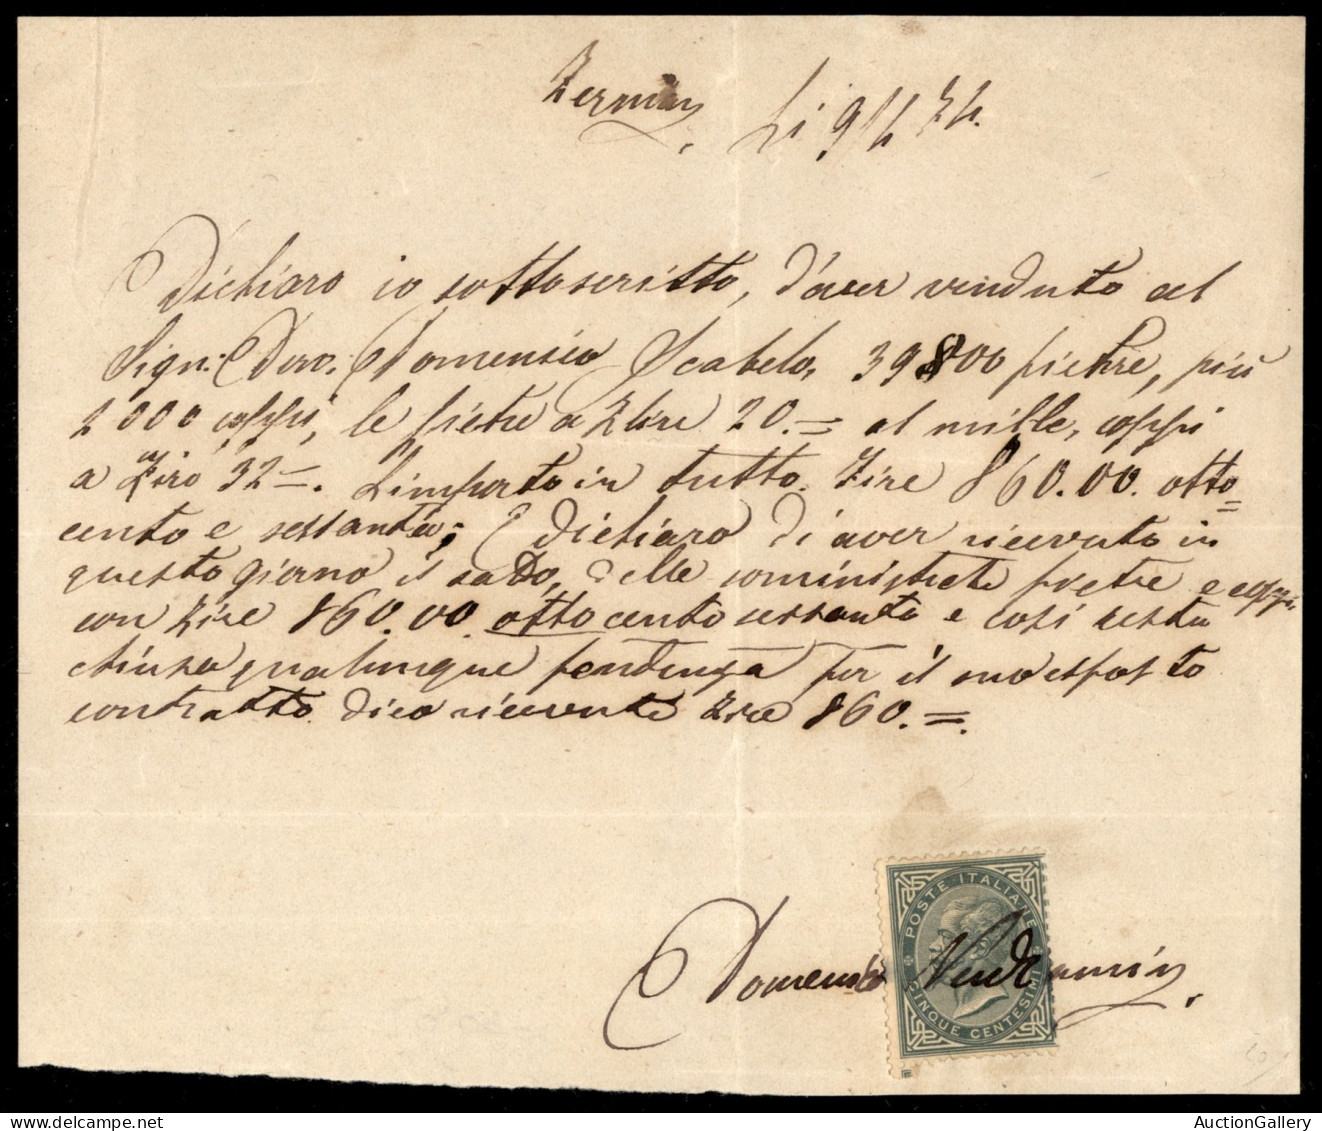 Li 9/4 74.
Dichiaro io sottoscritto, d'aver venduto al
Sign: Dom. Domenico Scabelo, 39800 pietre, più
2000 coppi, le pietre a Lire 20.= al mille, coppi
a Lire 32=. L'importo in tutto Lire 860.00. otto=
cento e sessanta; E dichiaro di aver ricevuto in
questo giorno il saldo, delle soministrate pietre e coppi
con Lire 860.00 ottocento sessanta e così resta
chiusa qualunque pendenza per il su esposto
contratto dico ricevute Lire 860.=.
Domenico Vendramin
POSTE ITALIANE
CINQUE CENTESIMI
AuctionGallery